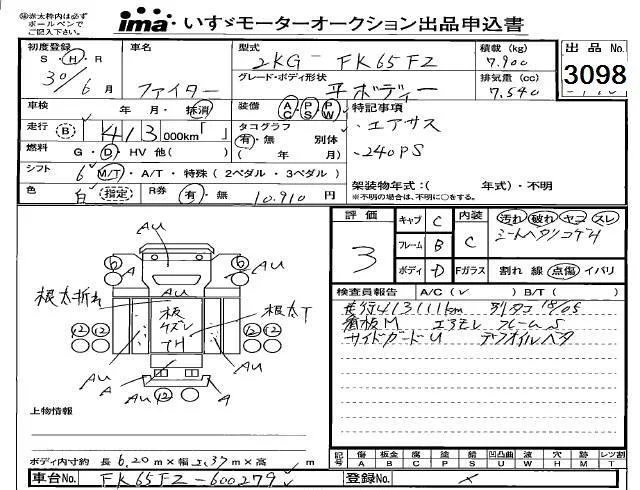 ※赤太枠内は必ず
ボールペンで
ご記入下さい。
ima・いすゞモーターオークション出品申込書
初度登録 S・H・R 30/6月
車名 ファイター
型式 2KG-FK65FZ
グレード・ボディ形状 平ボディー
積載 (kg) 7,900
排気量 (cc) 7.540
出品No.
3098
車検 年・月・抹消
装備 AC・PS・PW
特記事項
走行 B 413 000km「 」
タコグラフ 有・無 別体
( 年 月)
・エアサス
・240PS
燃料 G・D・HV 他( )
シフト 6 M/T・A/T・特殊(2ペダル・3ペダル)
架装物年式:( 年式)・不明
※不明の場合は、不明に○をする。
色 白 指定 R券 有・無 10.910円
評価 3
キャブ C
フレーム B
ボディ D
内装 C
Fガラス
汚れ 破れ ヤコ スレ
シートヘタリコゲ4
割れ 線 点傷 イバリ
検査員報告 A/C(✓) B/T( )
走行413111km 別タコ 18/05
看板M エラモレ フレームS
サイドガードU デフオイルベタ
AU
⑥ A ⑥ AU
AU
根太折れ
板 ケズレ TH
根太T
⑫ ⑫ ⑫ ⑫
AU A AU
AU ⑫ A
上物情報
ボディ内寸約 長 6.20m×幅 2.37m×高 m
記号 傷 A 板金 B 腐 C 塗 P 錆 S 凹凸曲 U 波 W 穴 H 跡 M レンズ割 T
車台No. FK65FZ-600279
登録No.